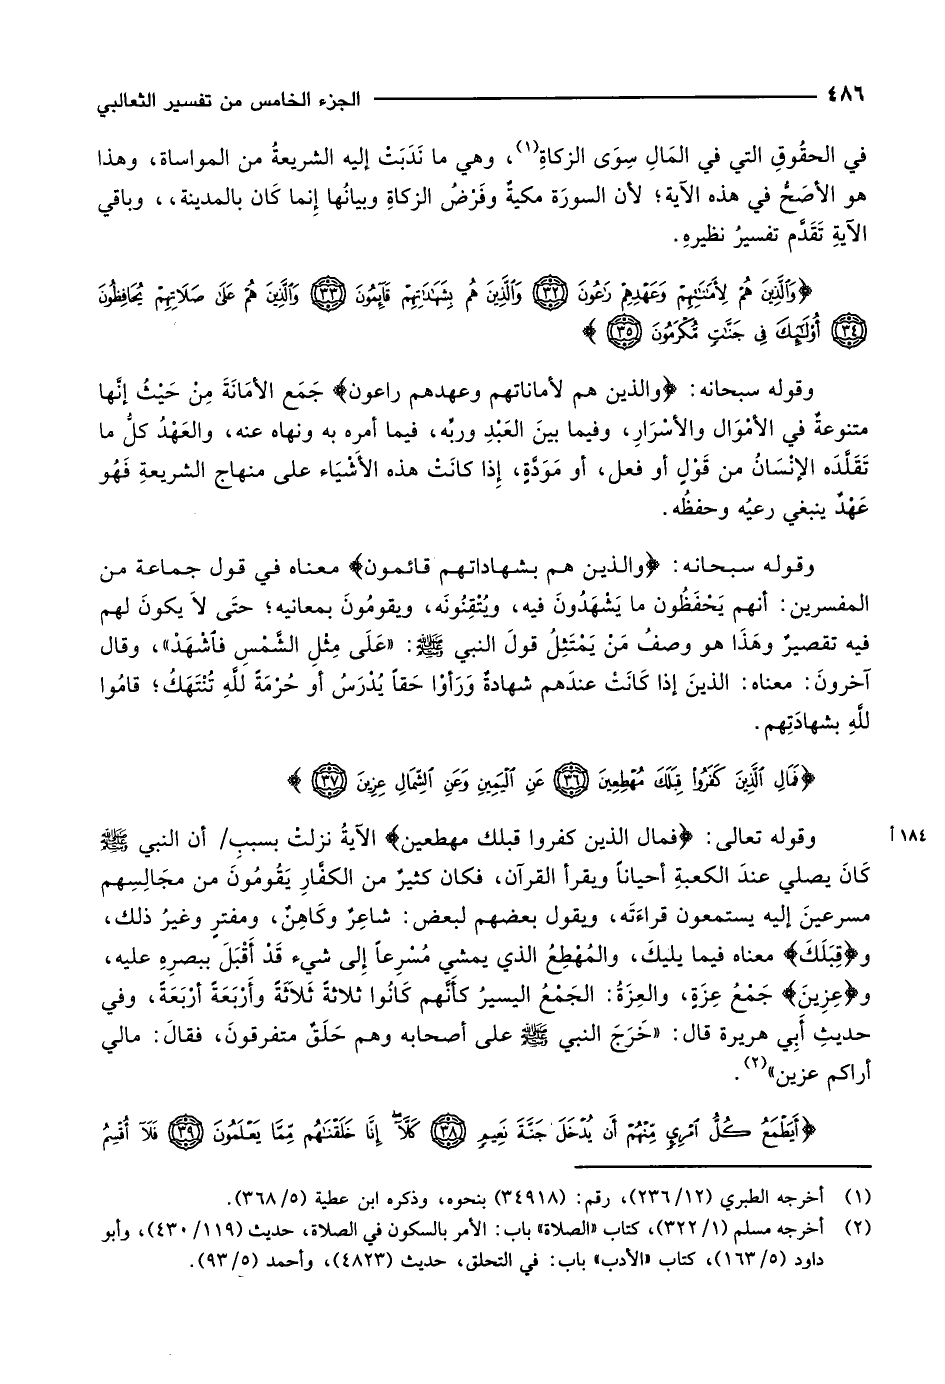 ٤٨٦ ــــــ الجزء الخامس من تفسير الثعالبي
في الحقُوقِ التي في المَالِ سِوَى الزكاةِ(١)، وهي ما نَدَبَتْ إليه الشريعةُ من المواساة، وهذا
هو الأصَحُّ في هذه الآية؛ لأن السورَة مكيةٌ وفَرْضُ الزكاةِ وبيانُها إِنما كَان بالمدينة،، وباقي
الآيةِ تَقَدَّم تفسيرُ نظيرهِ.
﴿وَٱلَّذِينَ هُمْ لِأَمَٰنَٰتِهِمْ وَعَهْدِهِمْ رَٰعُونَ ﴿٣٢﴾ وَٱلَّذِينَ هُم بِشَهَٰدَٰتِهِمْ قَآئِمُونَ ﴿٣٣﴾ وَٱلَّذِينَ هُمْ عَلَىٰ صَلَاتِهِمْ يُحَافِظُونَ
﴿٣٤﴾ أُوْلَٰٓئِكَ فِى جَنَّٰتٍ مُّكْرَمُونَ ﴿٣٥﴾ ﴾
وقوله سبحانه: ﴿والذين هم لأماناتهم وعهدهم راعون﴾ جَمَع الأمَانَةَ مِنْ حَيْثُ إنَّها
متنوعةٌ في الأمْوَال والأسْرَارِ، وفيما بينَ العَبْدِ وربِّه، فيما أمره به ونهاه عنه، والعَهْدُ كلُّ ما
تَقَلَّدَه الإنْسَانُ من قَوْلٍ أو فعل، أو مَوَدَّةٍ، إِذا كانَتْ هذه الأَشْيَاء على منهاج الشريعةِ فَهُو
عَهْدٌ ينبغي رعيُه وحفظُه.
وقوله سبحانه: ﴿والذين هم بشهاداتهم قائمون﴾ معناه في قول جماعة من
المفسرين: أنهم يَحْفَظُون ما يَشْهَدُونَ فيه، ويُتْقِنُونَه، ويقومُونَ بمعانيه؛ حتَى لاَ يكونَ لهم
فيه تقصيرٌ وهَذَا هو وصفُ مَنْ يَمْتَثِلُ قولَ النبي ﷺ: «عَلَى مِثْلِ الشَّمْسِ فَاشْهَدْ»، وقال
آخرونَ: معناه: الذينَ إذا كَانَتْ عندَهم شهادةٌ وَرَأوْا حَقاً يُدْرَسُ أو حُرْمَةً للَّهِ تُنْتَهَكُ؛ قامُوا
للَّهِ بشهادَتِهم.
﴿فَمَالِ ٱلَّذِينَ كَفَرُواْ قِبَلَكَ مُهْطِعِينَ ﴿٣٦﴾ عَنِ ٱلْيَمِينِ وَعَنِ ٱلشِّمَالِ عِزِينَ ﴿٣٧﴾ ﴾
١٨٤أ وقوله تعالى: ﴿فمال الذين كفروا قبلك مهطعين﴾ الآيةُ نزلتْ بسببِ/ أن النبي ﷺ
كَانَ يصلي عندَ الكعبةِ أحياناً ويقرأ القرآن، فكان كثيرٌ من الكفَّارِ يَقُومُونَ من مجَالِسِهم
مسرعينَ إليه يستمعون قراءَتَه، ويقول بعضهم لبعض: شاعِرٌ وكَاهِنٌ، ومفترٍ وغيرُ ذلك،
و﴿قِبَلَكَ﴾ معناه فيما يليكَ، والمُهْطِعُ الذي يمشي مُسْرِعاً إلى شيء قَدْ أَقْبَلَ ببصرِهِ عليه،
و﴿عِزِينَ﴾ جَمْعُ عِزَةٍ، والعِزَةُ: الجَمْعُ اليسيرُ كأنَّهم كَانُوا ثلاثةً ثَلاَثَةً وأَرْبَعَةً أرْبَعَةً، وفي
حديثِ أَبِي هريرة قال: «خَرَجَ النبي ﷺ على أصحابه وهم حَلَقٌ متفرقونَ، فقالَ: مالي
أراكم عزين»(٢).
﴿أَيَطْمَعُ كُلُّ ٱمْرِئٍ مِّنْهُمْ أَن يُدْخَلَ جَنَّةَ نَعِيمٍ ﴿٣٨﴾ كَلَّآ ۖ إِنَّا خَلَقْنَٰهُم مِّمَّا يَعْلَمُونَ ﴿٣٩﴾ فَلَآ أُقْسِمُ
(١) أخرجه الطبري (٢٣٦/١٢)، رقم: (٣٤٩١٨) بنحوه، وذكره ابن عطية (٣٦٨/٥).
(٢) أخرجه مسلم (٣٢٢/١)، كتاب «الصلاة» باب: الأمر بالسكون في الصلاة، حديث (٤٣٠/١١٩)، وأبو
داود (١٦٣/٥)، كتاب «الأدب» باب: في التحلق، حديث (٤٨٢٣)، وأحمد (٩٣/٥).